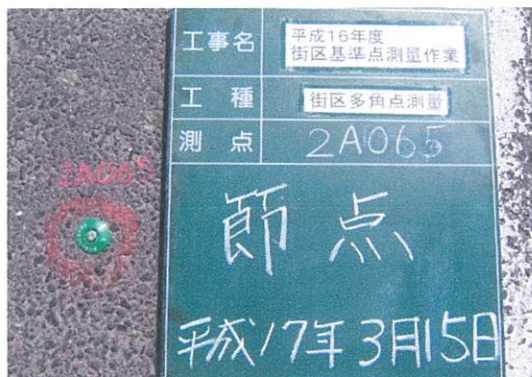 工事名
平成16年度
街区基準点測量作業
工種
街区多角点測量
測点
2A065
2A065
節点
平成17年3月15日